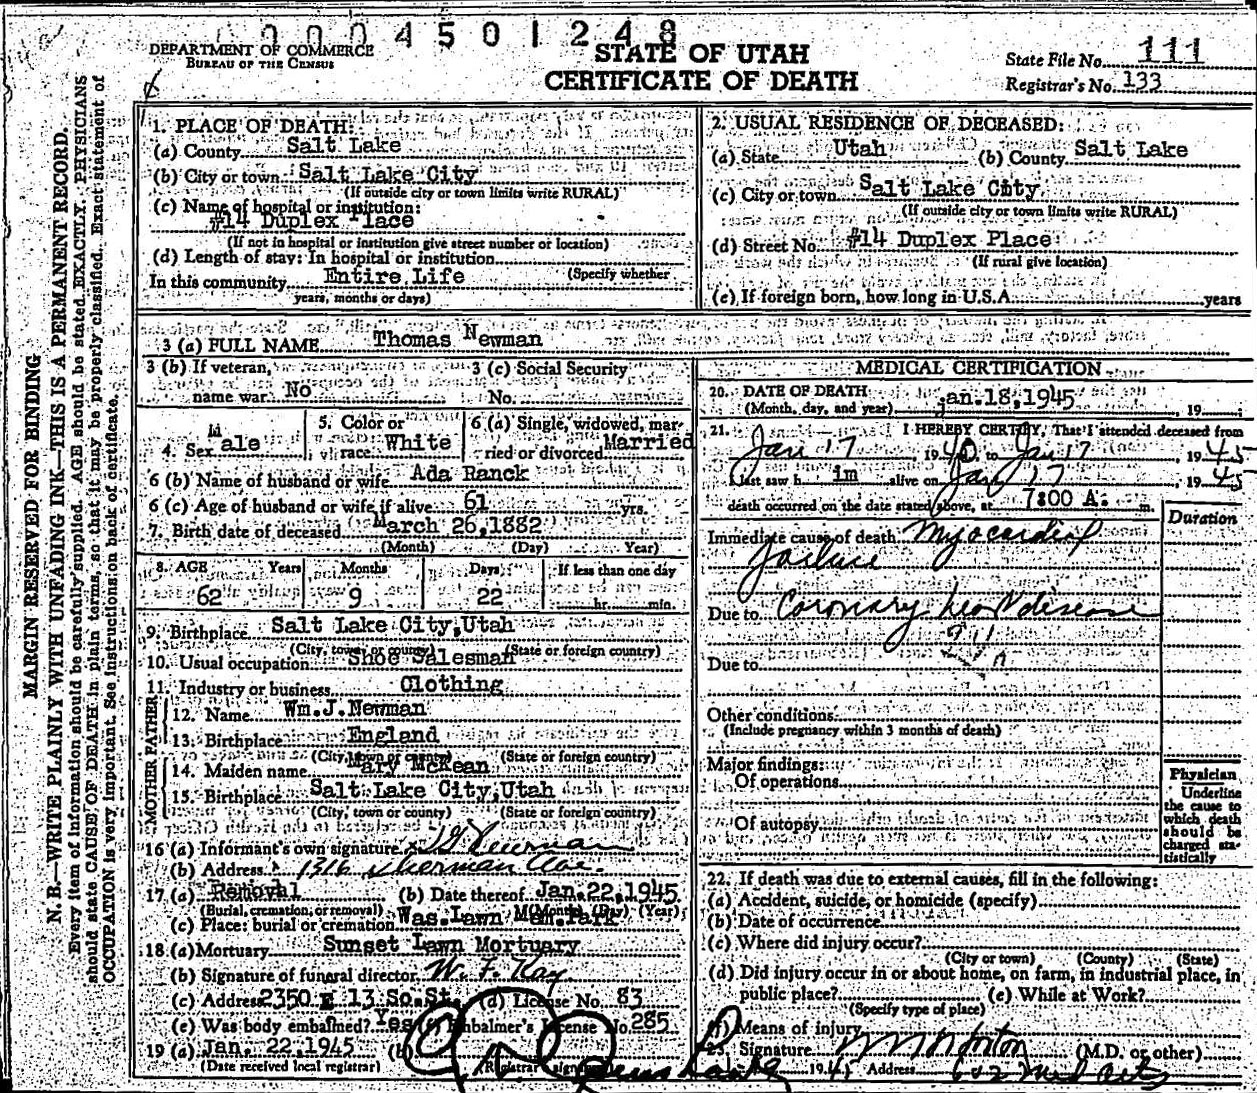 0004501248
DEPARTMENT OF COMMERCE
BUREAU OF THE CENSUS
STATE OF UTAH
CERTIFICATE OF DEATH
State File No. 111
Registrar's No. 133
MARGIN RESERVED FOR BINDING
N. B.—WRITE PLAINLY WITH UNFADING INK—THIS IS A PERMANENT RECORD.
Every item of information should be carefully supplied. AGE should be stated EXACTLY. PHYSICIANS
should state CAUSE OF DEATH in plain terms, so that it may be properly classified. Exact statement of
OCCUPATION is very important. See instructions on back of certificate.
1. PLACE OF DEATH:
(a) County Salt Lake
(b) City or town Salt Lake City
(If outside city or town limits write RURAL)
(c) Name of hospital or institution:
#14 Duplex Place
(If not in hospital or institution give street number or location)
(d) Length of stay: In hospital or institution
(Specify whether
In this community Entire Life
years, months or days)
2. USUAL RESIDENCE OF DECEASED:
(a) State Utah (b) County Salt Lake
(c) City or town Salt Lake City
(If outside city or town limits write RURAL)
(d) Street No. #14 Duplex Place
(If rural give location)
(e) If foreign born, how long in U.S.A. years
3 (a) FULL NAME Thomas Newman
3 (b) If veteran, name war No
3 (c) Social Security No.
4. Sex Male
5. Color or race White
6 (a) Single, widowed, married or divorced Married
6 (b) Name of husband or wife Ada Ranck
6 (c) Age of husband or wife if alive 61 yrs.
7. Birth date of deceased March 26,1882
(Month) (Day) Year)
8. AGE Years Months Days If less than one day
62 9 22 hr. min.
9. Birthplace Salt Lake City,Utah
(City, town or county) (State or foreign country)
10. Usual occupation Shoe Salesman
11. Industry or business Clothing
FATHER
12. Name Wm.J.Newman
13. Birthplace England
(City, town or county) (State or foreign country)
MOTHER
14. Maiden name Mary McKean
15. Birthplace Salt Lake City,Utah
(City, town or county) (State or foreign country)
16 (a) Informant's own signature Newman
(b) Address 1316 Sherman Ave.
17 (a) Removal (b) Date thereof Jan.22,1945
(Burial, cremation, or removal) (Month) (Day) (Year)
(c) Place: burial or cremation Was.Lawn Mem.Park
18 (a) Mortuary Sunset Lawn Mortuary
(b) Signature of funeral director W. F. Kay
(c) Address 2350 E 13 So.St. (d) License No. 83
(e) Was body embalmed? Yes (f) Embalmer's License No. 285
19 (a) Jan. 22,1945 (b)
(Date received local registrar) (Registrar's signature)
MEDICAL CERTIFICATION
20. DATE OF DEATH
(Month, day, and year) jan.18,1945, 19
21. I HEREBY CERTIFY, That I attended deceased from
Jan 17, 1940, to Jan 17, 1945
I last saw h im alive on Jan 17, 1945
death occurred on the date stated above, at 7:00 A. m.
Duration
Immediate cause of death Myocardial
failure
Due to Coronary heart disease
Due to
Other conditions
(Include pregnancy within 3 months of death)
Major findings:
Of operations
Of autopsy
Physician
Underline
the cause to
which death
should be
charged sta-
tistically
22. If death was due to external causes, fill in the following:
(a) Accident, suicide, or homicide (specify)
(b) Date of occurrence
(c) Where did injury occur?
(City or town) (County) (State)
(d) Did injury occur in or about home, on farm, in industrial place, in
public place? (e) While at Work?
(Specify type of place)
(f) Means of injury
23. Signature (M.D. or other)
Address